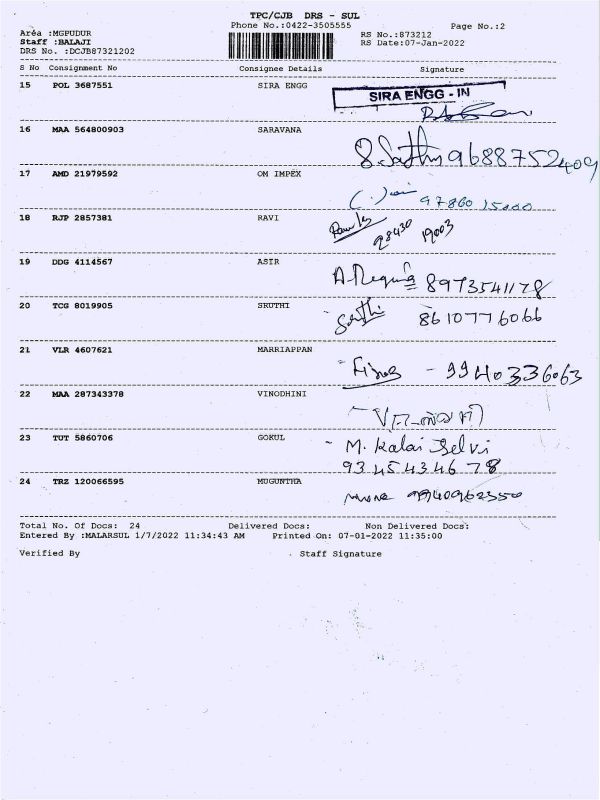 TPC/CJB DRS - SUL
Phone No.:0422-3505555
Page No.:2
Aréa :MGPUDUR
Staff :BALAJI
DRS No. :DCJB87321202
RS No.:873212
RS Date:07-Jan-2022
S No Consignment No Consignee Details Signature
15 POL 3687551 SIRA ENGG SIRA ENGG - IN
16 MAA 564800903 SARAVANA
9688752409
17 AMD 21979592 OM IMPEX
97860 15000
18 RJP 2857381 RAVI
98430 19003
19 DDG 4114567 ASIR
8973541178
20 TCG 8019905 SRUTHI
8610776066
21 VLR 4607621 MARRIAPPAN
- 9940336063
22 MAA 287343378 VINODHINI
23 TUT 5860706 GOKUL M. Kalai Selvi
9345434678
24 TRZ 120066595 MUGUNTHA
9940962350
Total No. Of Docs: 24 Delivered Docs: Non Delivered Docs:
Entered By :MALARSUL 1/7/2022 11:34:43 AM Printed On: 07-01-2022 11:35:00
Verified By Staff Signature